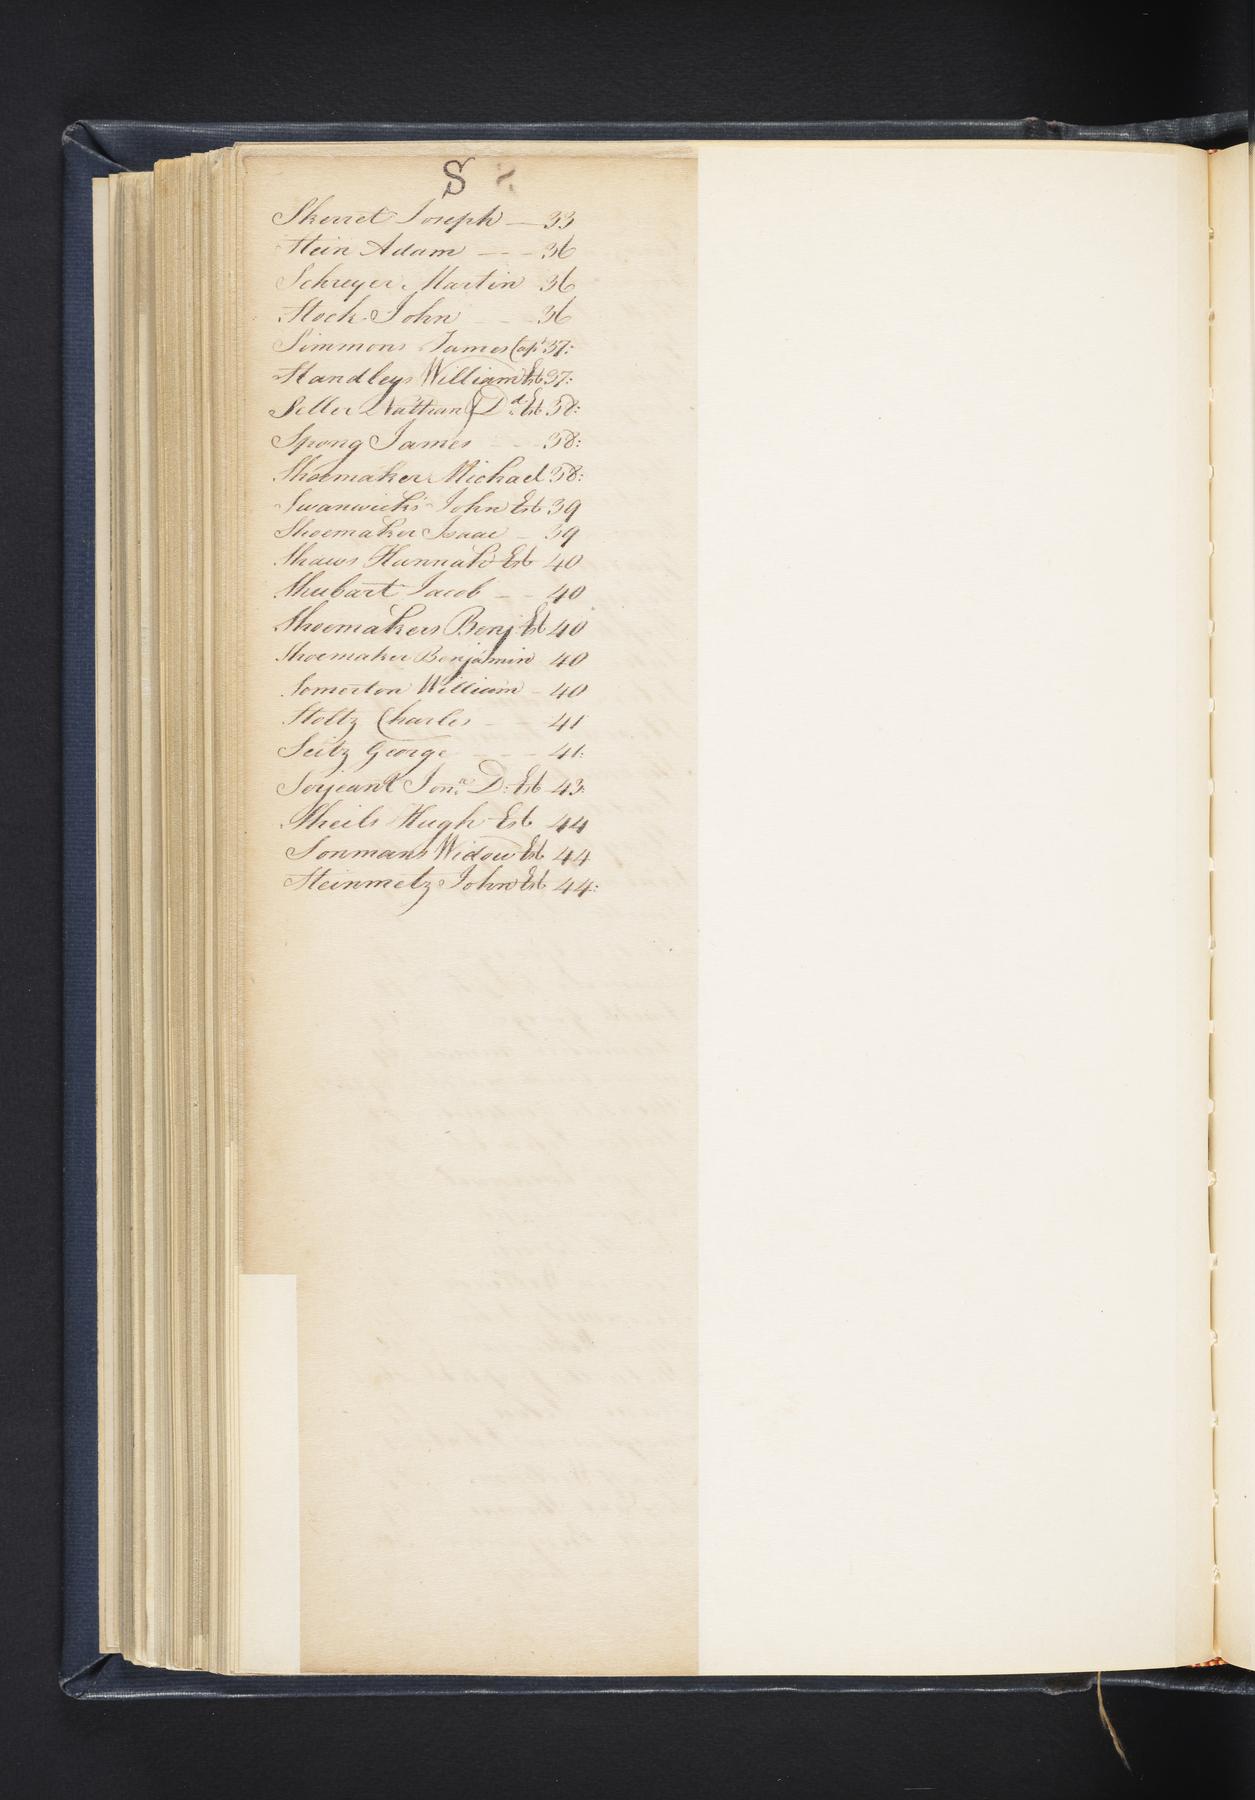 S
Skerret Joseph — 33
Stein Adam - - - 36
Schreyer Martin 36
Stock John - - 36
Simmons James Capt 37:
Standleys William Est 37:
Seller Nathan & Dd Est 38:
Spong James - - 38:
Shoemaker Michael 38:
Swanwick's John Est 39
Shoemaker Isaac - 39
Shaws Hannah Est 40
Shubart Jacob - - 40
Shoemakers Benj Est 40
Shoemaker Benjamin 40
Somerton William - 40
Stoltz Charles - - 41
Seitz George - - - 41:
Serjeant Jona. D: Est 43:
Sheils Hugh Est 44
Sonmans Widow Est 44
Steinmetz John Est 44: